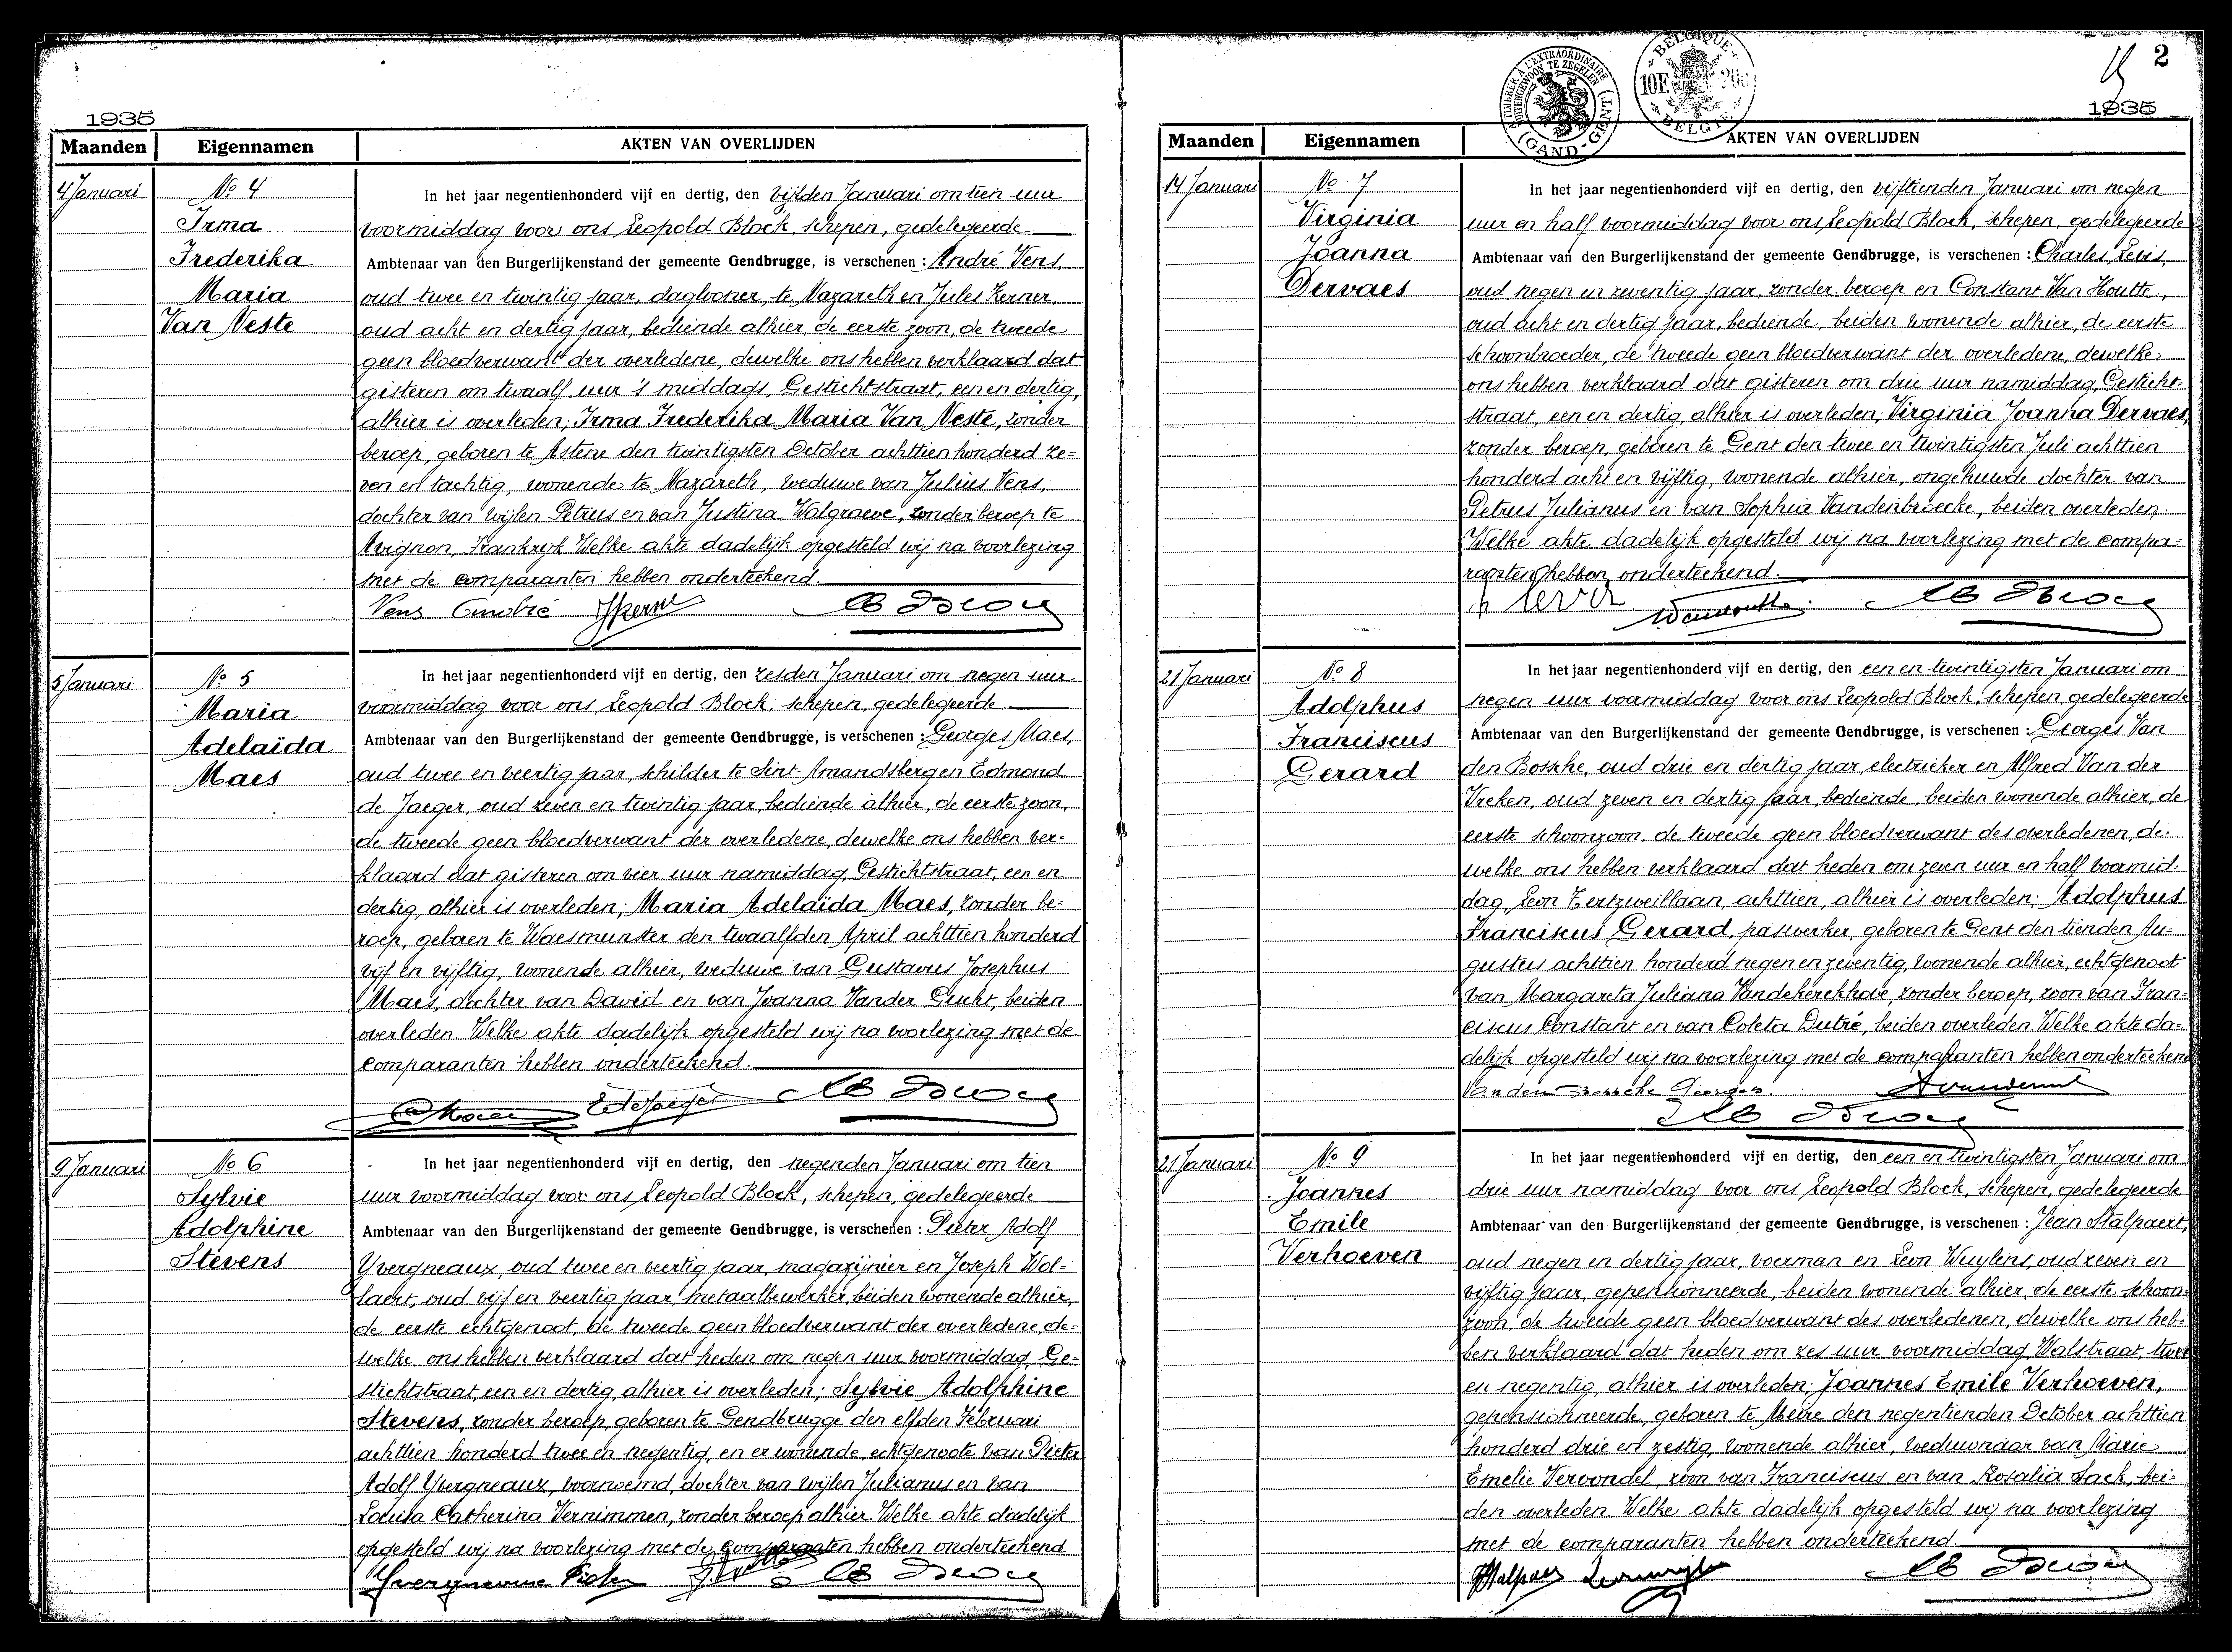 1935
Maanden Eigennamen AKTEN VAN OVERLIJDEN
4 Januari
No 4
Irma
Frederika
Maria
Van Neste
In het jaar negentienhonderd vijf en dertig, den vijfden Januari om tien uur
voormiddag voor ons Leopold Block, schepen, gedelegeerde
Ambtenaar van den Burgerlijkenstand der gemeente Gendbrugge, is verschenen : André Vens,
oud twee en twintig jaar, daglooner, te Nazareth en Jules Kerner,
oud acht en dertig jaar, bediende alhier, de eerste zoon, de tweede
geen bloedverwant der overledene, dewelke ons hebben verklaard dat
gisteren om twaalf uur 's middags, Gestichtstraat, een en dertig,
alhier is overleden; Irma Frederika Maria Van Neste, zonder
beroep, geboren te Astene den twintigsten October achttien honderd ze=
ven en tachtig, wonende te Nazareth, weduwe van Julius Vens,
dochter van wijlen Petrus en van Justina Walgraeve, zonder beroep te
Avignon, Frankrijk Welke akte dadelijk opgesteld wij na voorlezing
met de comparanten hebben onderteekend.
Vens André
5 Januari
No 5
Maria
Adelaïda
Maes
In het jaar negentienhonderd vijf en dertig, den zesden Januari om negen uur
voormiddag voor ons Leopold Block, schepen, gedelegeerde
Ambtenaar van den Burgerlijkenstand der gemeente Gendbrugge, is verschenen : Georges Maes,
oud twee en veertig jaar, schilder te Sint-Amandsberg en Edmond
de Jaeger, oud zeven en twintig jaar, bediende alhier, de eerste zoon,
de tweede geen bloedverwant der overledene, dewelke ons hebben ver=
klaard dat gisteren om vier uur namiddag, Gestichtstraat, een en
dertig, alhier is overleden; Maria Adelaïda Maes, zonder be=
roep, geboren te Waesmunster den twaalfden April achttien honderd
vijf en vijftig, wonende alhier, weduwe van Gustavus Josephus
Maes, dochter van David en van Joanna Vander Gucht, beiden
overleden. Welke akte dadelijk opgesteld wij na voorlezing met de
comparanten hebben onderteekend.
EdeJaeger
9 Januari
No 6
Sylvie
Adolphine
Stevens
In het jaar negentienhonderd vijf en dertig, den negenden Januari om tien
uur voormiddag voor ons Leopold Block, schepen, gedelegeerde
Ambtenaar van den Burgerlijkenstand der gemeente Gendbrugge, is verschenen : Pieter Adolf
Yvergneaux, oud twee en veertig jaar, magazijnier en Joseph Wol=
laert, oud vijf en veertig jaar, metaalbewerker, beiden wonende alhier,
de eerste echtgenoot, de tweede geen bloedverwant der overledene, de=
welke ons hebben verklaard dat heden om negen uur voormiddag, Ge=
stichtstraat, een en dertig, alhier is overleden; Sylvie Adolphine
Stevens, zonder beroep, geboren te Gendbrugge den elfden Februari
achttien honderd twee en negentig, en er wonende, echtgenoote van Pieter
Adolf Yvergneaux, voornoemd, dochter van wijlen Julianus en van
Louisa Catherina Vernimmen, zonder beroep alhier. Welke akte dadelijk
opgesteld wij na voorlezing met de comparanten hebben onderteekend
2
1935
ATIMBRER A L'EXTRAORDINAIRE
BUITENGEWOON TE ZEGELEN
(GAND-GENT)
BELGIQUE
10F.
BELGIE
Maanden Eigennamen AKTEN VAN OVERLIJDEN
14 Januari
No 7
Virginia
Joanna
Dervaes
In het jaar negentienhonderd vijf en dertig, den vijftienden Januari om negen
uur en half voormiddag voor ons, Leopold Block, schepen, gedelegeerde
Ambtenaar van den Burgerlijkenstand der gemeente Gendbrugge, is verschenen : Charles Levis,
oud negen en zeventig jaar, zonder beroep en Constant Van Houtte,
oud acht en dertig jaar, bediende, beiden wonende alhier, de eerste
schoonbroeder, de tweede geen bloedverwant der overledene, dewelke
ons hebben verklaard dat gisteren om drie uur namiddag, Gesticht=
straat, een en dertig, alhier is overleden; Virginia Joanna Dervaes,
zonder beroep, geboren te Gent den twee en twintigsten Juli achttien
honderd acht en vijftig, wonende alhier, ongehuwde dochter van
Petrus Julianus en van Sophia Vandenbroecke, beiden overleden.
Welke akte dadelijk opgesteld wij na voorlezing met de compa=
ranten hebben onderteekend.
21 Januari
No 8
Adolphus
Franciscus
Gerard
In het jaar negentienhonderd vijf en dertig, den een en twintigsten Januari om
negen uur voormiddag voor ons Leopold Block, schepen, gedelegeerde
Ambtenaar van den Burgerlijkenstand der gemeente Gendbrugge, is verschenen : Georges Van
den Bossche, oud drie en dertig jaar, electrieker en Alfred Van der
Vreken, oud zeven en dertig jaar, bediende, beiden wonende alhier, de
eerste schoonzoon, de tweede geen bloedverwant des overledenen, de=
welke ons hebben verklaard dat heden om zeven uur en half voormid=
dag, Leon Tertzweillaan, achttien, alhier is overleden; Adolphus
Franciscus Gerard, paswerker, geboren te Gent den tienden Au=
gustus achttien honderd negen en zeventig, wonende alhier, echtgenoot
van Margareta Juliana Vandekerckhove, zonder beroep, zoon van Fran=
ciscus Constant en van Coleta Dutré, beiden overleden. Welke akte da=
delijk opgesteld wij na voorlezing met de comparanten hebben onderteekend
Van den Bossche Georges.
21 Januari
No 9
Joannes
Emile
Verhoeven
In het jaar negentienhonderd vijf en dertig, den een en twintigsten Januari om
drie uur namiddag voor ons Leopold Block, schepen, gedelegeerde
Ambtenaar van den Burgerlijkenstand der gemeente Gendbrugge, is verschenen : Jean Stalpaert,
oud negen en dertig jaar, voerman en Leon Wuylens, oud zeven en
vijftig jaar, gepensionneerde, beiden wonende alhier, de eerste schoon=
zoon, de tweede geen bloedverwant des overledenen, dewelke ons heb=
ben verklaard dat heden om zes uur voormiddag, Walstraat, twee
en negentig, alhier is overleden; Joannes Emile Verhoeven,
gepensionneerde, geboren te Meire den negentienden October achttien
honderd drie en zestig, wonende alhier, weduwnaar van Marie
Emelie Vervondel, zoon van Franciscus en van Rosalia Sack, bei=
den overleden. Welke akte dadelijk opgesteld wij na voorlezing
met de comparanten hebben onderteekend.